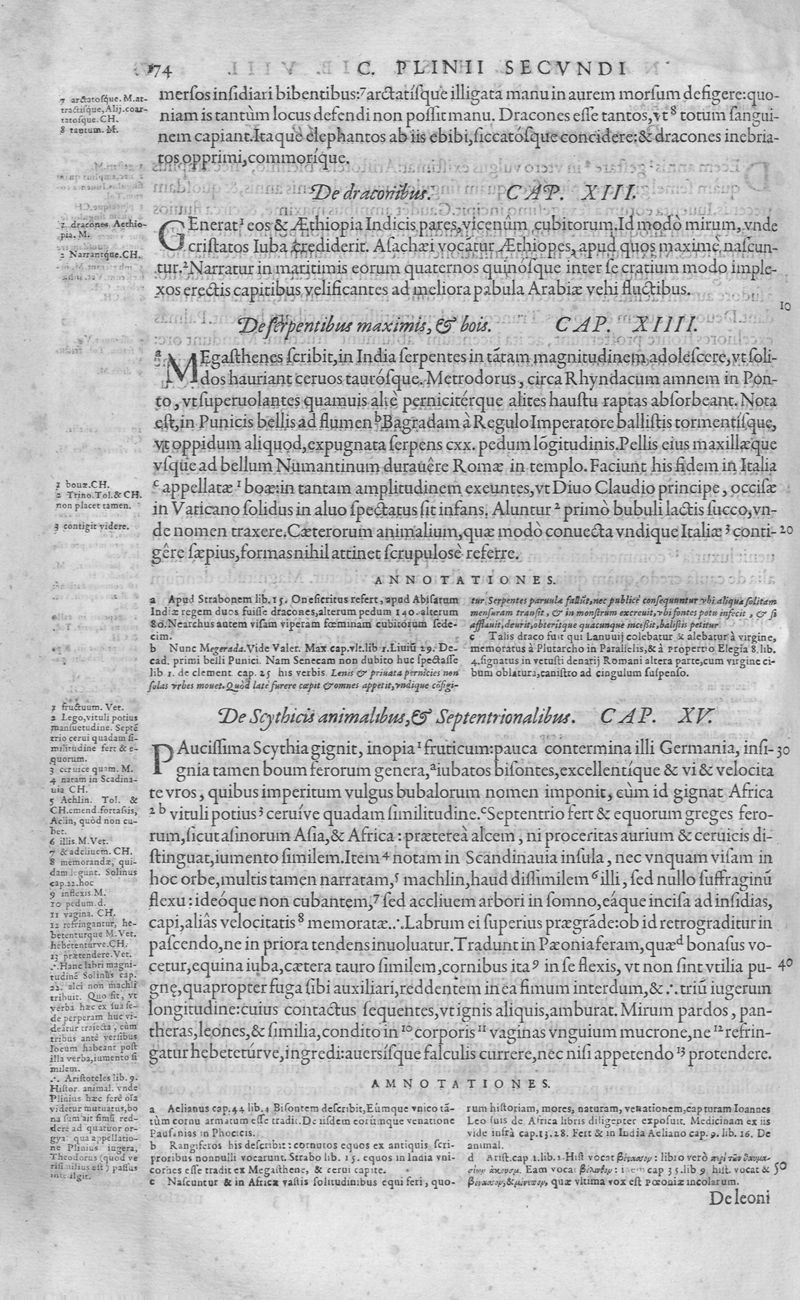 174 C. PLINII SECVNDI
7 arctatosque. M. at-
tractisque. Alij. coar-
tatosque. CH.
8 tantum. M.
mersos insidiari bibentibus:⁷arctatísque illigata manu in aurem morsum defigere:quo-
niam is tantùm locus defendi non possit manu. Dracones esse tantos,vt⁸ totum sangui-
nem capiant.Itaque elephantos ab iis ebibi,siccatósque concidere:& dracones inebria-
tos opprimi,commoríque.
De draconibus. CAP. XIII.
1 dracones Aethio-
pia. M.
2 Narrantque.CH.
GEnerat¹ eos & Æthiopia Indicis pares,vicenûm cubitorum.Id modò mirum, vnde
cristatos Iuba crediderit. Asachæi vocatur Æthiopes, apud quos maximè nascun-
tur.²Narratur in maritimis eorum quaternos quinósque inter se cratium modo imple-
xos erectis capitibus velificantes ad meliora pabula Arabiæ vehi fluctibus.
10
De serpentibus maximis, & bois. CAP. XIIII.
ᵃMEgasthenes scribit,in India serpentes in tãtam magnitudinem adolescere,vt soli-
dos hauriant ceruos taurósque. Metrodorus, circa Rhyndacum amnem in Pon-
to, vt superuolantes quamuis altè perniciterque alites haustu raptas absorbeant. Nota
est,in Punicis bellis ad flumen ᵇBagradam à Regulo Imperatore ballistis tormentísque,
vt oppidum aliquod,expugnata serpens cxx. pedum lõgitudinis.Pellis eius maxillæque
vsque ad bellum Numantinum durauêre Romæ in templo. Faciunt his fidem in Italia
1 bouæ.CH.
2 Trino.Tol.& CH.
non placet tamen.
3 contigit videre.
ᶜ appellatæ ¹ boæ:in tantam amplitudinem exeuntes,vt Diuo Claudio principe, occisæ
in Vaticano solidus in aluo spectatus sit infans. Aluntur ² primò bubuli lactis succo,vn-
de nomen traxere.Cæterorum animalium,quæ modò conuecta vndique Italiæ ³ conti- 20
gêre sæpius,formas nihil attinet scrupulosè referre.
ANNOTATIONES.
a Apud Strabonem lib.15. Onesicritus refert, apud Abisarum
Indiæ regem duos fuisse dracones,alterum pedum 140. alterum
80.Nearchus autem visam viperam fœminam cubitorum sede-
cim.
b Nunc Megerada.Vide Valer. Max cap.vlt.lib 1.Liuiũ 29. De-
cad. primi belli Punici. Nam Senecam non dubito huc spectasse
lib 1. de clement cap. 25 his verbis. Lenis & priuata pernicies non
solas vrbes mouet. Quòd latè furere cœpit & omnes appetit,vndique cõfigi-
tur. Serpentes paruula fallũt,nec publicè consequuntur vbi aliqua solitam
mensuram transit, & in monstrum excreuit,vbi fontes potu infecit, & si
afflauit,deurit,obteritque quacunque incessit,balistis petitur
c Talis draco fuit qui Lanuuij colebatur & alebatur à virgine,
memoratus à Plutarcho in Parallelis,& à Propertio Elegia 8. lib.
4.signatus in vetusti denarij Romani altera parte,cum virgine ci-
bum oblatura,canistro ad cingulum suspenso.
De Scythicis animalibus,& Septentrionalibus. CAP. XV.
1 fructuum. Vet.
2 Lego,vituli potius
mansuetudine. Septẽ
trio cerui quadam si-
militudine fert & e-
quorum.
3 ceruice quàm. M.
4 natam in Scadina-
uia CH.
5 Achlin. Tol. &
CH.emend.fortassis,
Aclin, quòd non cu-
bet.
6 illis.M.Vet.
7 & adcliuem. CH.
8 memorandæ, qui-
dam legunt. Solinus
cap.22.hoc
9 inflexis.M.
10 pedum.d.
11 vagina. CH.
12 refringantur, he-
betenturque M.Vet.
hebetenturve.CH.
13 prætendere.Vet.
∴Hanc labri magni-
tudinẽ Solinus cap.
22. alci non machli
tribuit. Quo fit, vt
verba hæc ex sua se-
de perperam huc vi-
deãtur traiecta, cùm
tribus antè versibus
locum habeant post
illa verba,iumento si
milem.
∴ Aristoteles lib. 9.
Histor. animal. vnde
Plinius hæc ferè oĩa
videtur mutuatus,bo
nasum ait fimũ red-
dere ad quatuor or-
gya: qua appellatio-
ne Plinius iugera,
Theodorus (quod ve
risimilius est) passus
intelligit.
PAucissima Scythia gignit, inopia ¹ fruticum:pauca contermina illi Germania, insi- 30
gnia tamen boum ferorum genera,ᵃiubatos bisontes,excellentíque & vi & velocita
te vros, quibus imperitum vulgus bubalorum nomen imponit, cùm id gignat Africa
² ᵇ vituli potius ³ ceruíve quadam similitudine.ᶜSeptentrio fert & equorum greges fero-
rum,sicut asinorum Asia,& Africa : prætereà alcem, ni proceritas aurium & ceruicis di-
stinguat,iumento similem.Item ⁴ notam in Scandinauia insula, nec vnquam visam in
hoc orbe,multis tamen narratam,⁵ machlin,haud dissimilem ⁶ illi, sed nullo suffraginũ
flexu : ideóque non cubantem,⁷ sed accliuem arbori in somno,eáque incisa ad insidias,
capi,aliâs velocitatis ⁸ memoratæ.∴Labrum ei superius prægrãde:ob id retrograditur in
pascendo,ne in priora tendens inuoluatur.Tradunt in Pæonia feram,quæ ᵈ bonasus vo-
cetur,equina iuba,cætera tauro similem,cornibus ita ⁹ in se flexis, vt non sint vtilia pu- 40
gnę,quapropter fuga sibi auxiliari,reddentem in ea fimum interdum,& ∴ triũ iugerum
longitudine:cuius contactus sequentes,vt ignis aliquis,amburat. Mirum pardos, pan-
theras,leones,& similia,condito in ¹⁰ corporis ¹¹ vaginas vnguium mucrone,ne ¹² refrin-
gatur hebetetúrve,ingredi:auersísque falculis currere,nec nisi appetendo ¹³ protendere.
AMNOTATIONES.
a Aelianus cap.44 lib.4 Bisontem describit,Eúmque vnico tã-
tùm cornu armatum esse tradit.De iisdem eorúmque venatione
Pausanias in Phocicis.
b Rangiferos his describit : cornutos equos ex antiquis scri-
ptoribus nonnulli vocarunt. Strabo lib. 15. equos in India vni-
cornes esse tradit ex Megasthene, & cerui capite.
c Nascuntur & in Africæ vastis solitudinibus equi feri, quo-
rum historiam, mores, naturam, venationem,capturam Ioannes
Leo suis de Africa libris diligenter exposuit. Medicinam ex iis
vide infrà cap.13.28. Fert & in India Aeliano cap.9. lib.16. De
animal.
d Arist.cap 1.lib.1 Hist vocat βόνασον : libro verò περὶ τῶν θαυμα-
σίων ἀκουσμ. Eam vocat βόλινθον : item cap 35.lib 9 hist. vocat & 50
βόνασσον,& μόναπον, quæ vltima vox est Pœoniæ incolarum.
De leoni